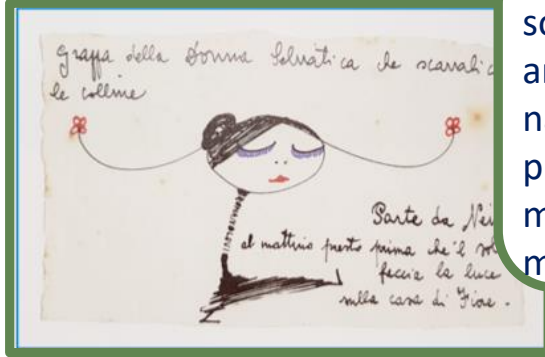 Grappa della donna selvatica che scavalica
le colline
Parte da Nei
al mattino presto prima che'l sol
faccia la luce
sulla casa di Fiore.